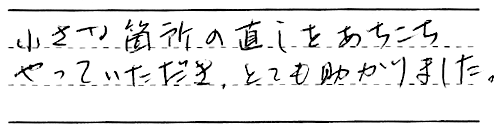 小さな箇所の直しをあちこち
やっていただき、とても助かりました。